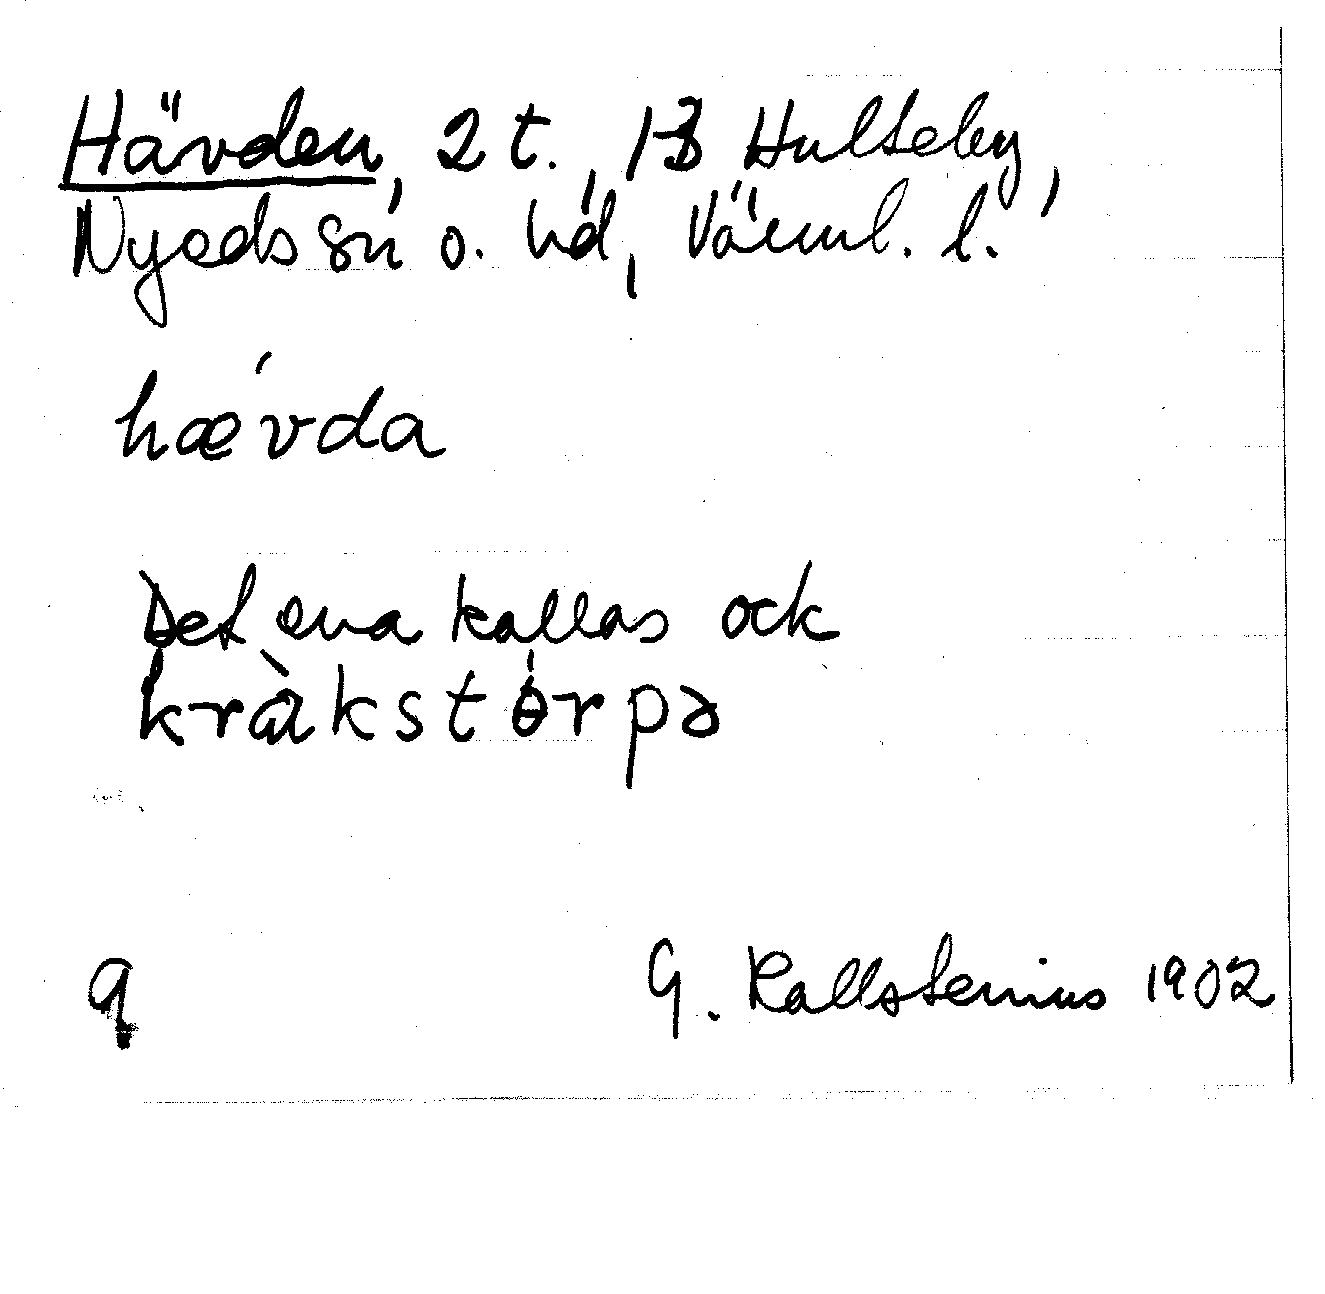 Hävden, 2 t., 13 Hulteby,
Nyeds sn o. hd, Värml. l.
hæ´vda
Det ena kallas ock
kràkstɵ́rpə
q
G. Kallstenius 1902